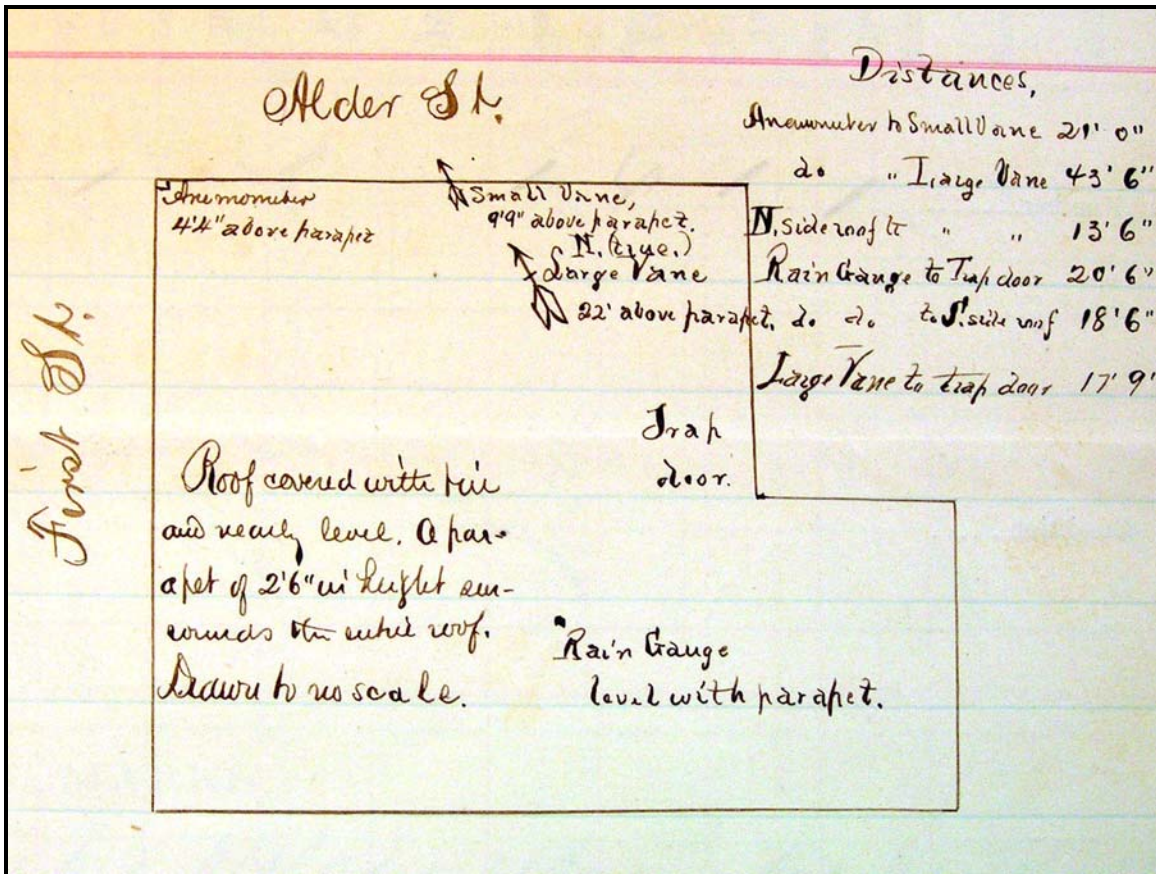 Alder St.
First St.
Anemometer
4'4" above parapet
Small Vane,
9'9" above parapet.
N. (true.)
Large Vane
22' above parapet.
Trap
door.
Roof covered with tin
and nearly level. A par-
apet of 2'6" in height sur-
rounds the entire roof.
Drawn to no scale.
Rain Gauge
level with parapet.
Distances,
Anemometer to Small Vane 21' 0"
do " Large Vane 43' 6"
N. side roof to " " 13' 6"
Rain Gauge to Trap door 20' 6"
do do to S. side roof 18' 6"
Large Vane to trap door 17' 9'